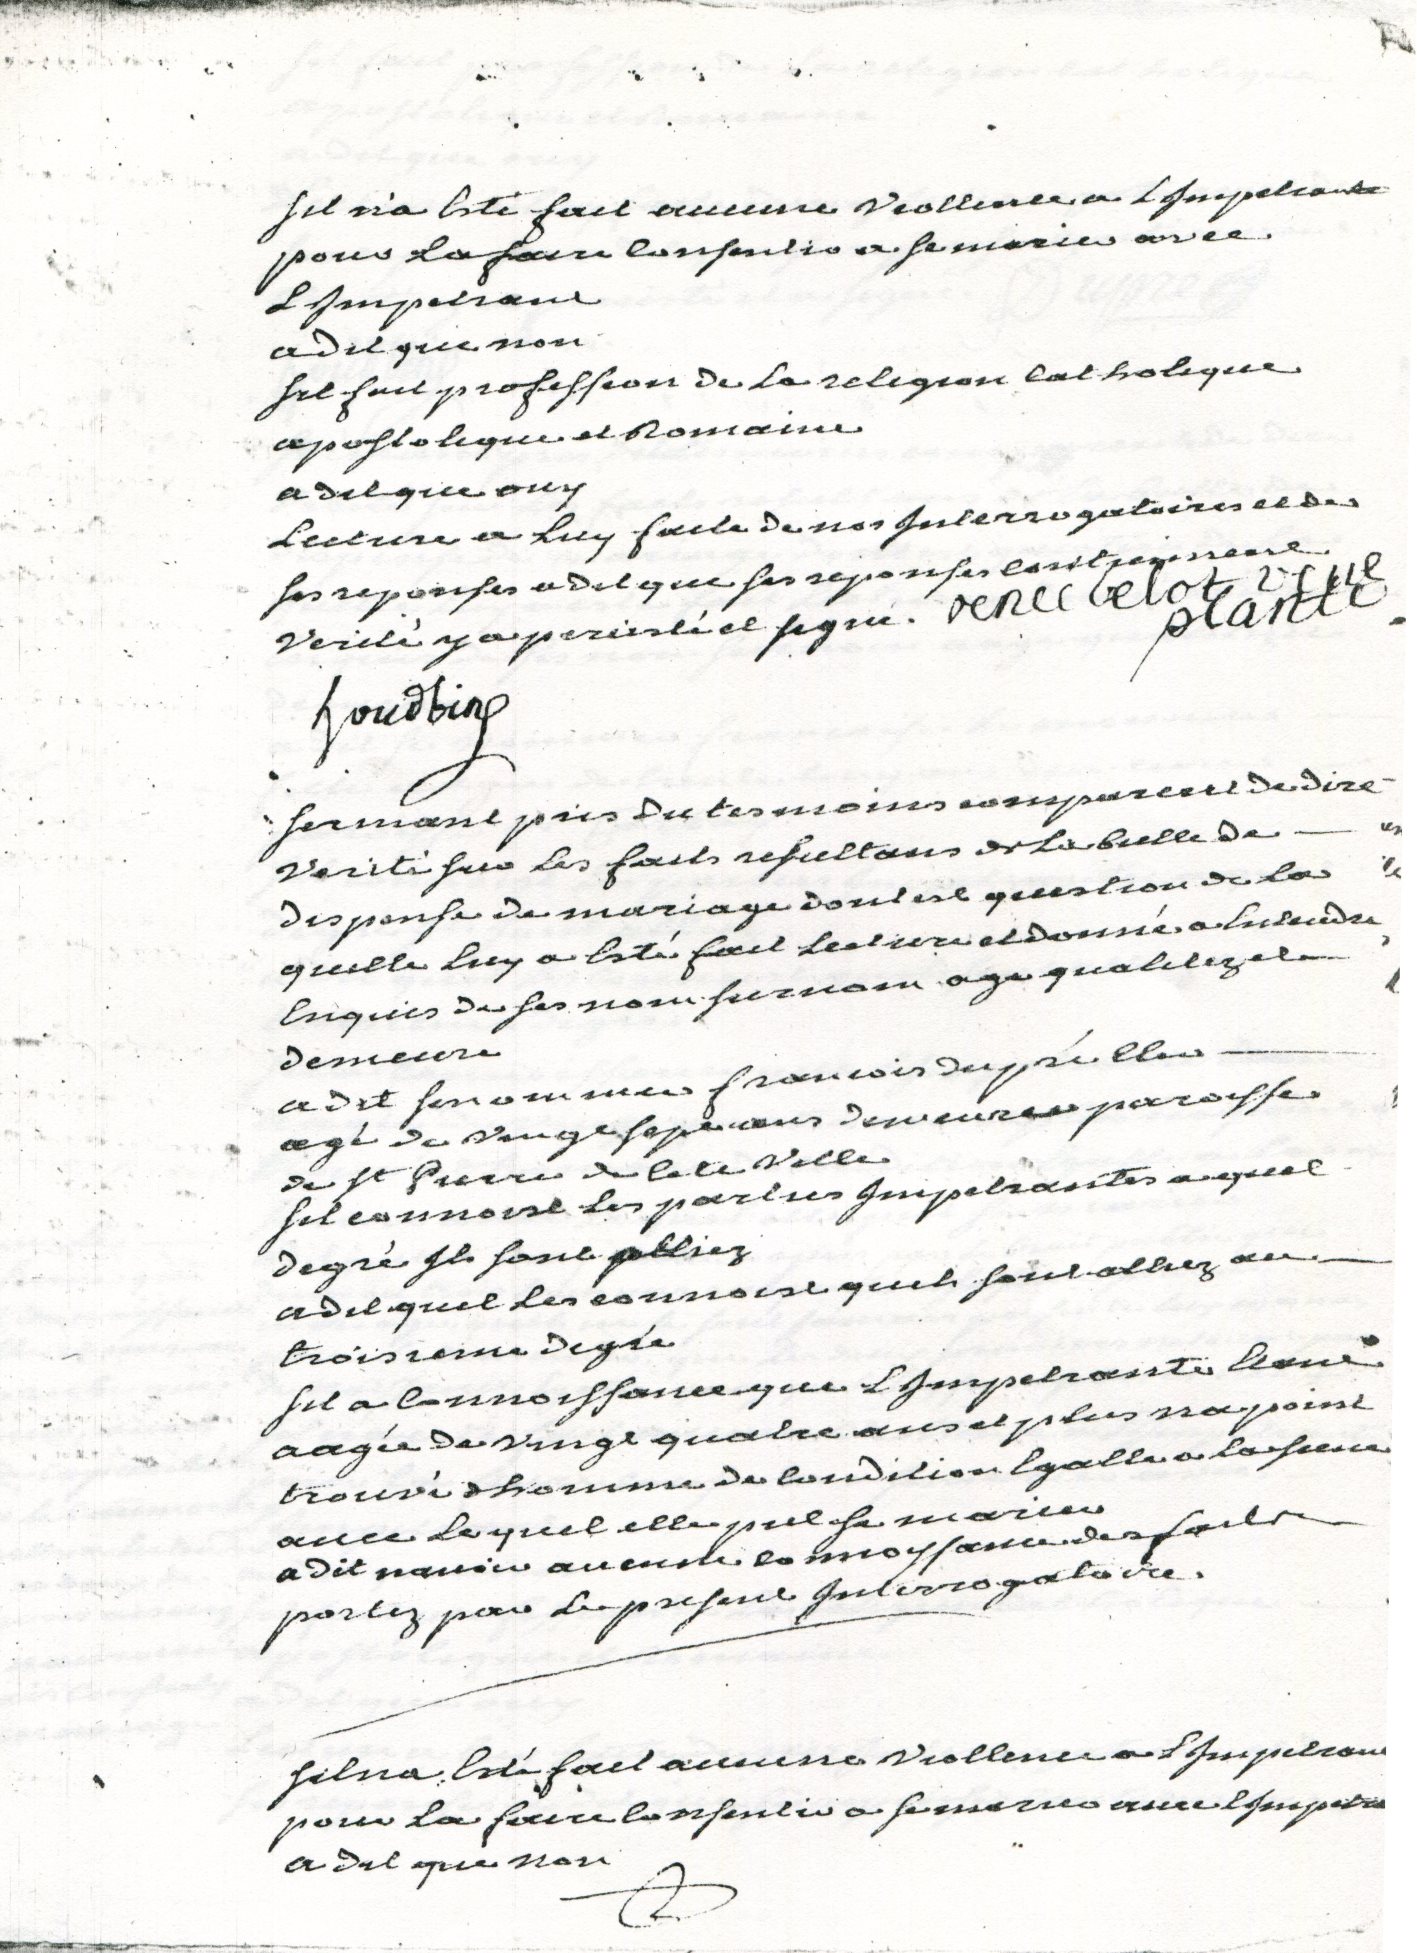 sil n'a esté fait aucune viollence a L Impetrante
pour La faire consentir a se marier avec
L Impetrant
a dit que non
sil fait profession de La religion catholique
apostolique et Romaine
a dit que ouy
Lecture a Luy faite de nos Interrogatoires et de
ses reponses a dit que ses reponses contiennent
verité y a percisté et signé. renee belot veuve
plante
houdbine
serment pris du tesmoins comparent de dire
verité sur Les faits resultans de La bulle de
dispense de mariage dont est question de La
quelle Luy a esté fait Lecture et donné a entendre
enquis de ses nom surnom age qualitez et
demeure
a dit se nommer francois dupré
agé de vingt sept ans demeurer paroisse
de st Pierre de cete ville
sil connoist Les parties Impetrantes a quel
degré Ils sont alliez
a dit quil Les connoist quils sont alliez au
troisieme degré
sil a connoissance que L Impetrante
aagée de vingt quatre ans et plus na point
trouvé dhomme de condition egalle a La sienne
avec Lequel elle put se marier
a dit navoir aucune connoyssance des faits
portez par Le present Interrogatoire.
sil na esté fait aucune viollence a L Impetrante
pour La faire consentir a se marier avec L Impetra
a dit que non